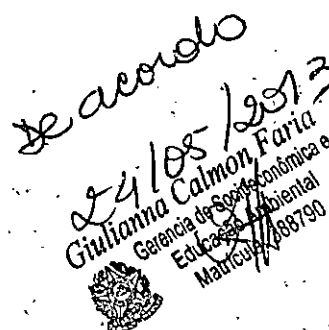 De acordo
24/05/2013
Giulianna Calmon Faria
Gerencia de Socioeconômica e
Educação Ambiental
Matrícula